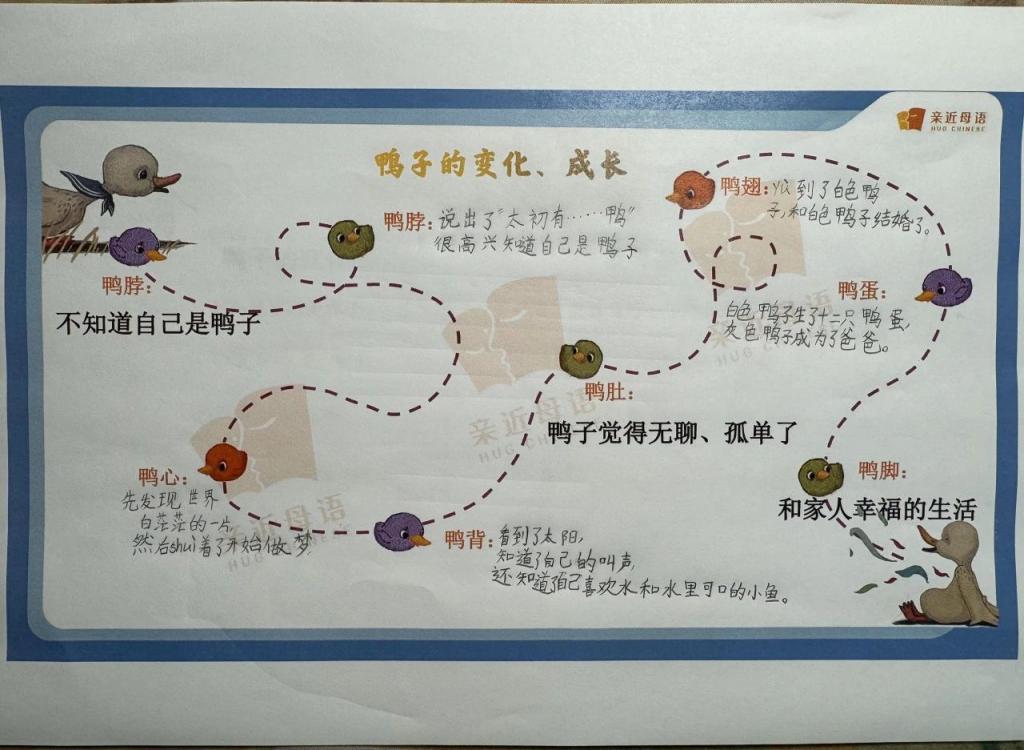 亲近母语
HUG CHINESE
鸭子的变化、成长
鸭脖：
不知道自己是鸭子
鸭脖：说出了“太初有……鸭”
很高兴知道自己是鸭子
鸭心：
先发现世界
白茫茫的一片，
然后shuì着了开始做梦
鸭背：看到了太阳，
知道了自己的叫声，
还知道了自己喜欢水和水里可口的小鱼。
鸭肚：
鸭子觉得无聊、孤单了
鸭翅：yù到了白色鸭
子，和白色鸭子结婚了。
鸭蛋：
白色鸭子生了十二只鸭蛋，
灰色鸭子成为了爸爸。
鸭脚：
和家人幸福的生活
亲近母语
HUG CHINESE
亲近母语
HUG CHINESE
亲近母语
HUG CHINESE